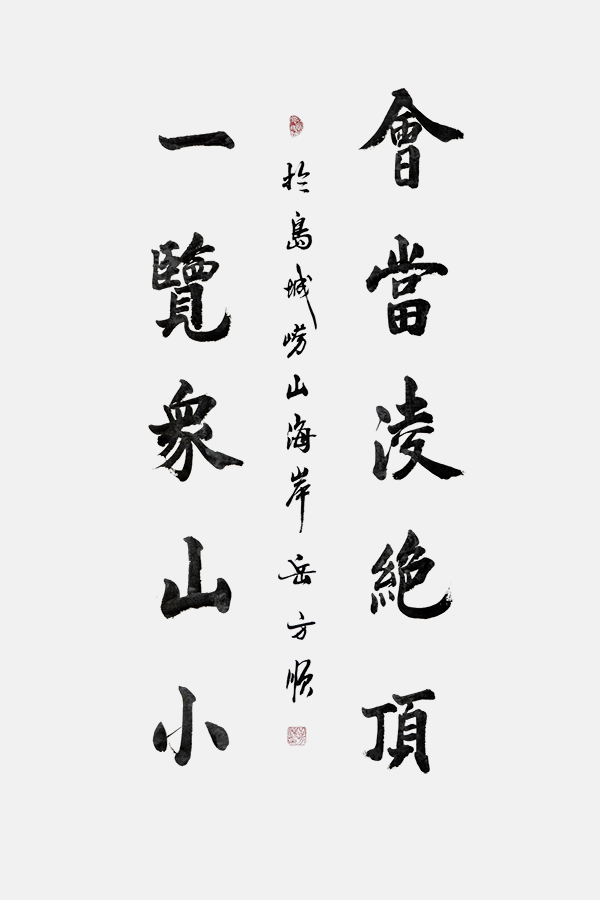 會當淩絕頂
一覽眾山小
於島城嶗山海岸岳方順